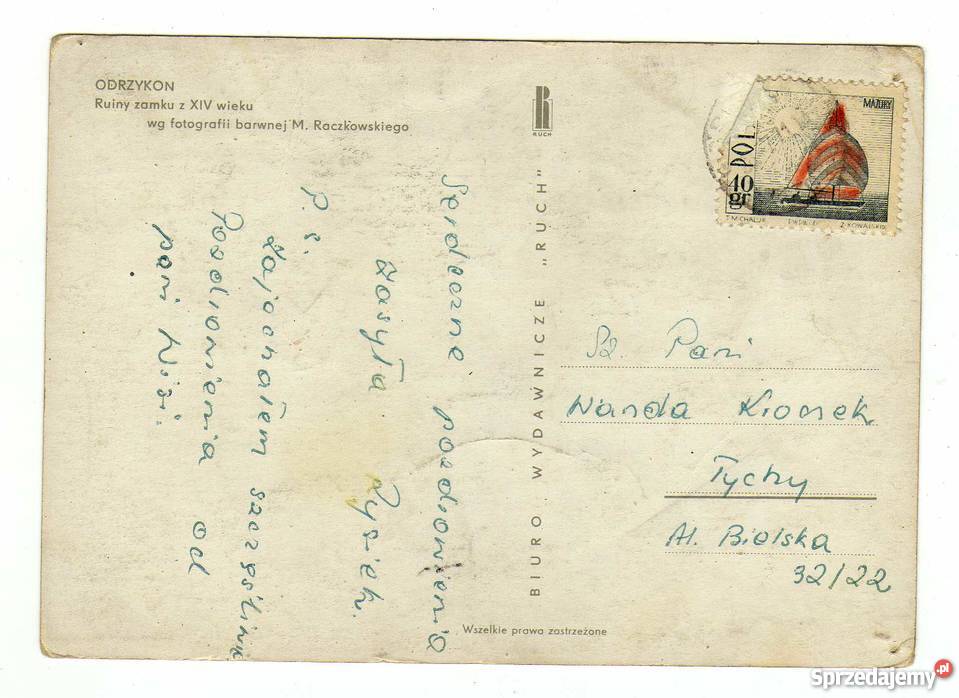 ODRZYKON
Ruiny zamku z XIV wieku
wg fotografii barwnej M. Raczkowskiego
RUCH
BIURO WYDAWNICZE „RUCH"
Wszelkie prawa zastrzeżone
MAZURY
POL
40 gr
T. MICHALUK
Z. KOWALSKI
Serdeczne pozdrowienia
zasyła Rysiek.
P. S.
Zajechałem szczęśliwie
Pozdrowienia od
pani Nisi.
Sz. Pani
Wanda
Tychy
Al. Bielska
32/22
Sprzedajemy.pl